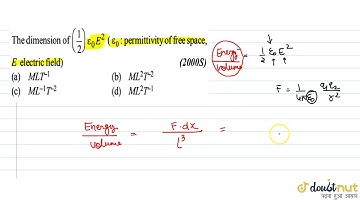 The dimension of (1/2) ε₀E² (ε₀ : permittivity of free space,
E electric field) (2000S)
(a) MLT⁻¹ (b) ML²T⁻²
(c) ML⁻¹T⁻² (d) ML²T⁻¹
Energy/volume = 1/2 ε₀E²
F = 1/4πε₀ q₁q₂/r²
Energy/volume = F·dx/L³ =
doubtnut
पढ़ना हुआ आसान